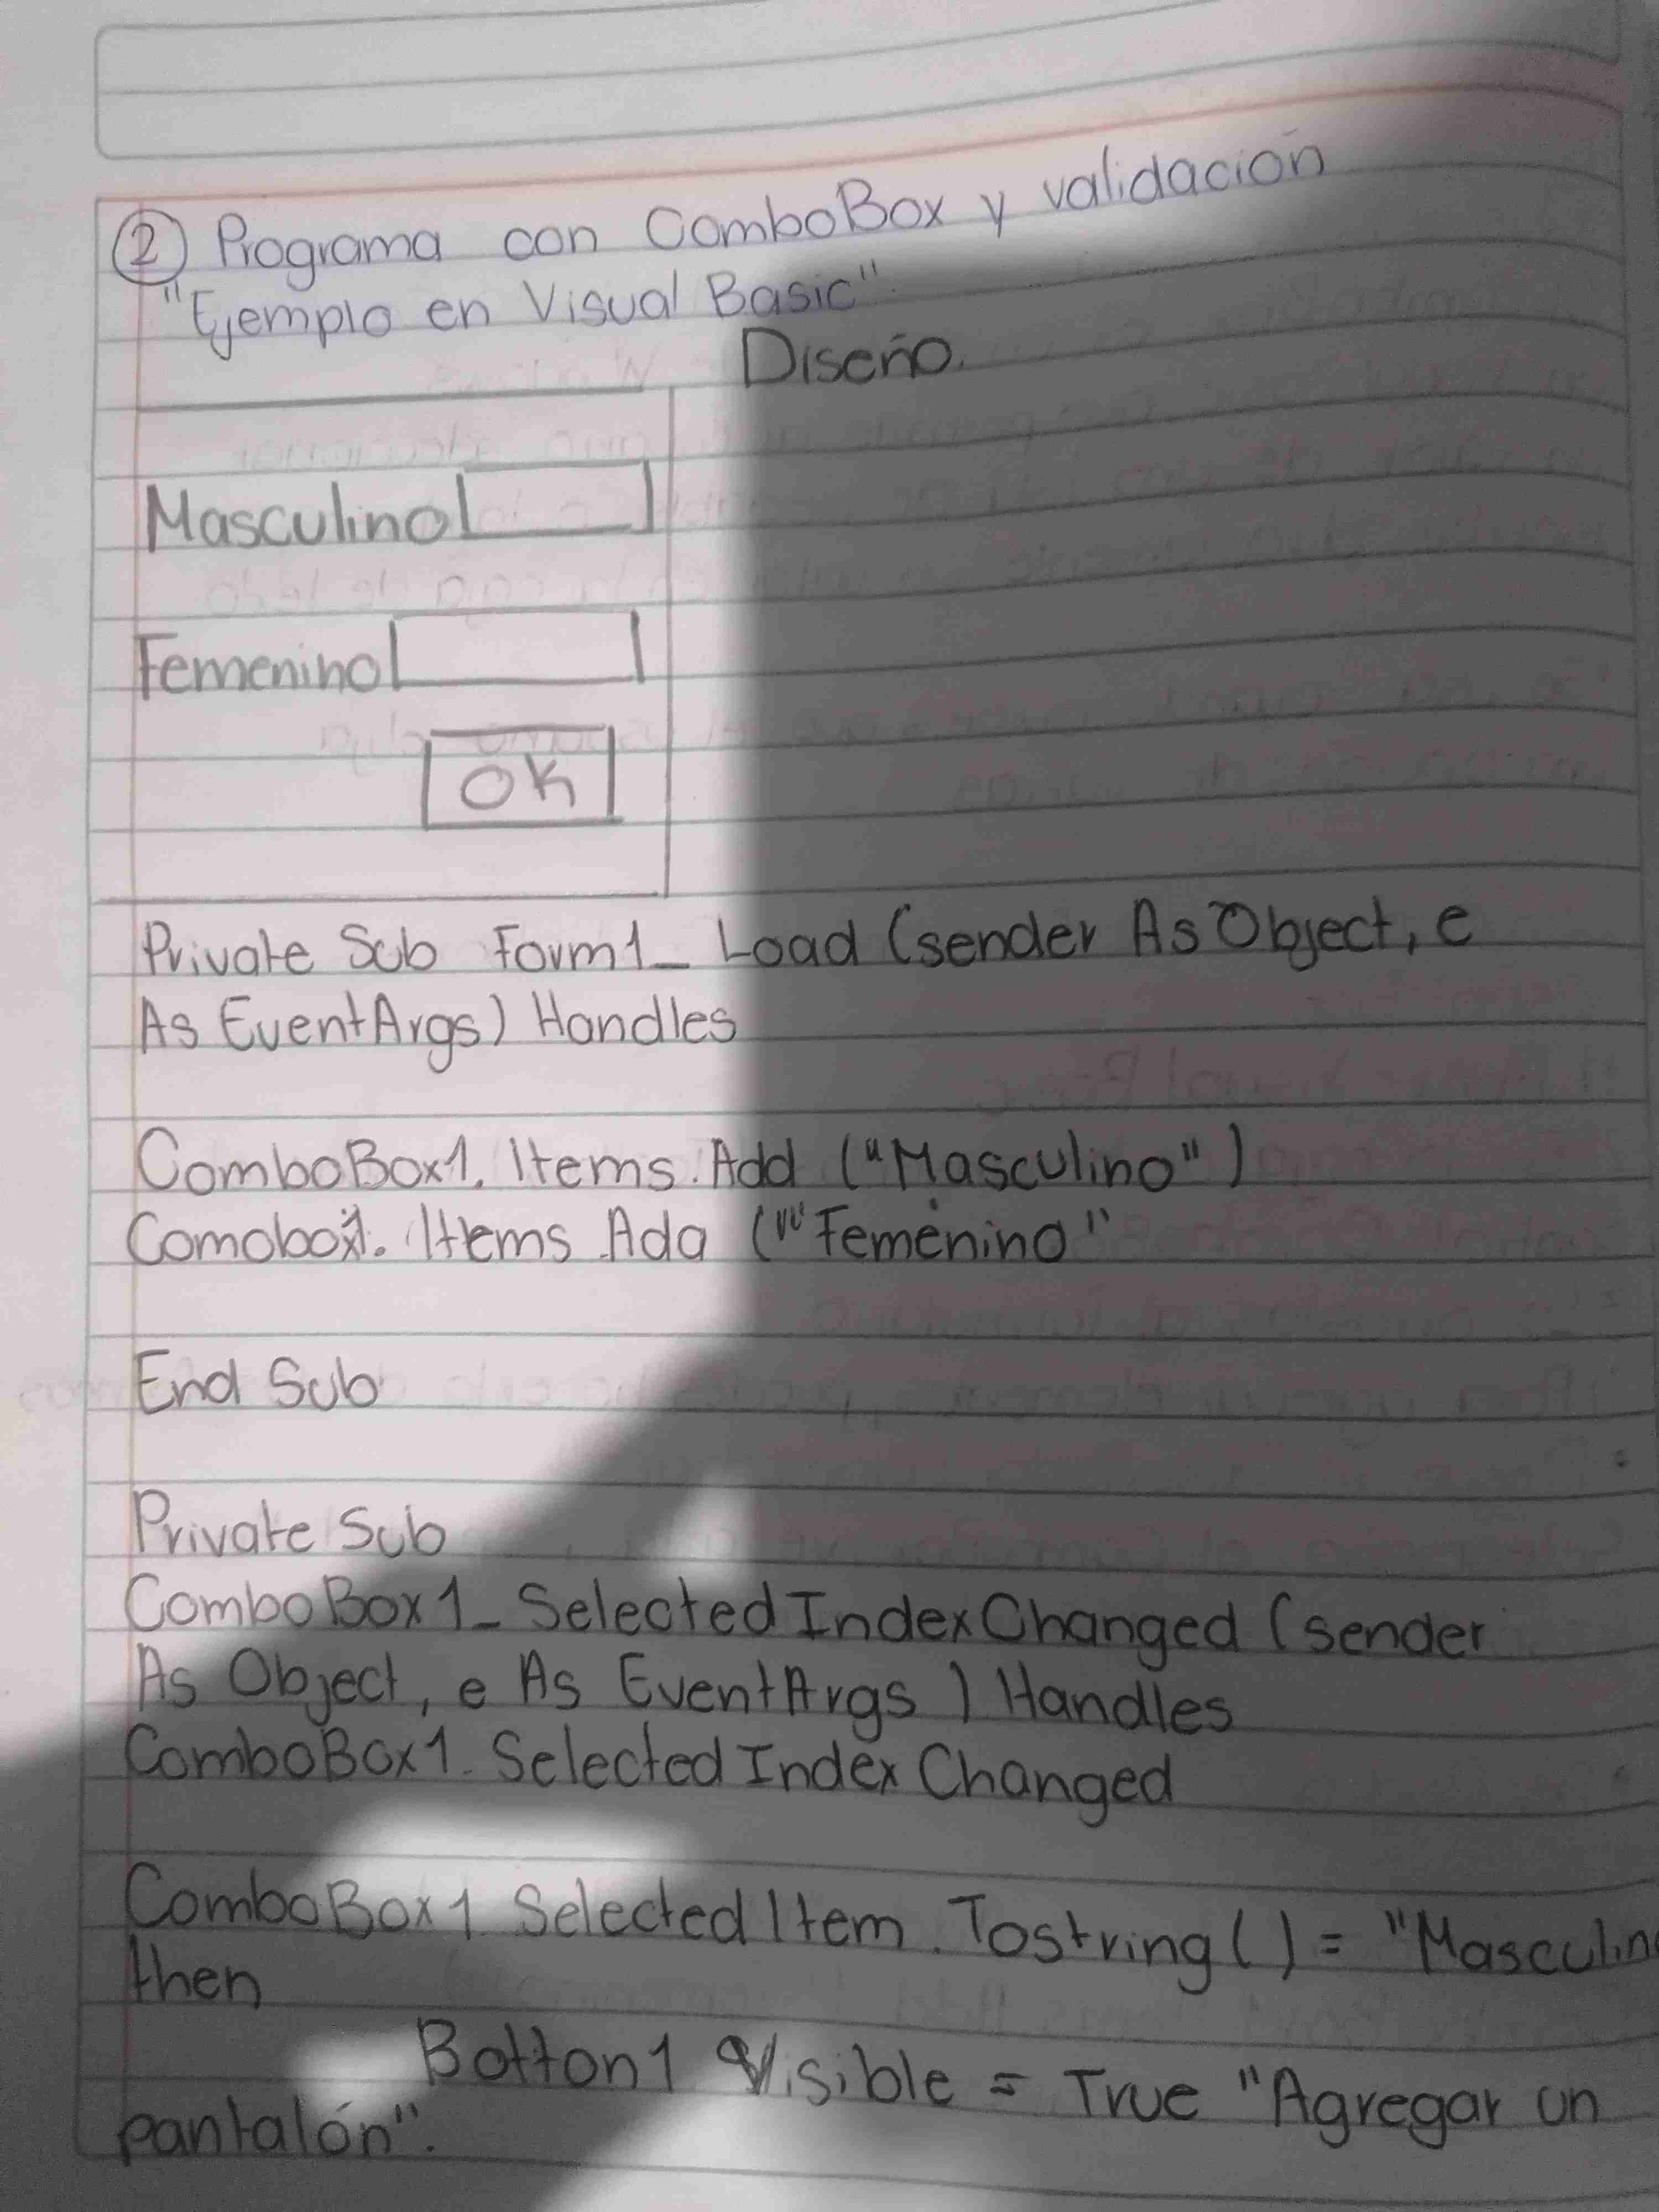 ② Programa con ComboBox y validación
"Ejemplo en Visual Basic"
Diseño.
Masculino
Femenino
OK
Private Sub Form1_ Load (sender As Object, e
As EventArgs) Handles
ComboBox1. Items. Add ("Masculino")
Comobox1. Items Ada (""Femenino"
End Sub
Private Sub
ComboBox1_ Selected IndexChanged (sender
As Object, e As EventArgs ) Handles
ComboBox1. Selected Index Changed
ComboBox1 Selected Item. Tostring() = "Masculino
then
Botton1 Visible = True "Agregar un
pantalón".